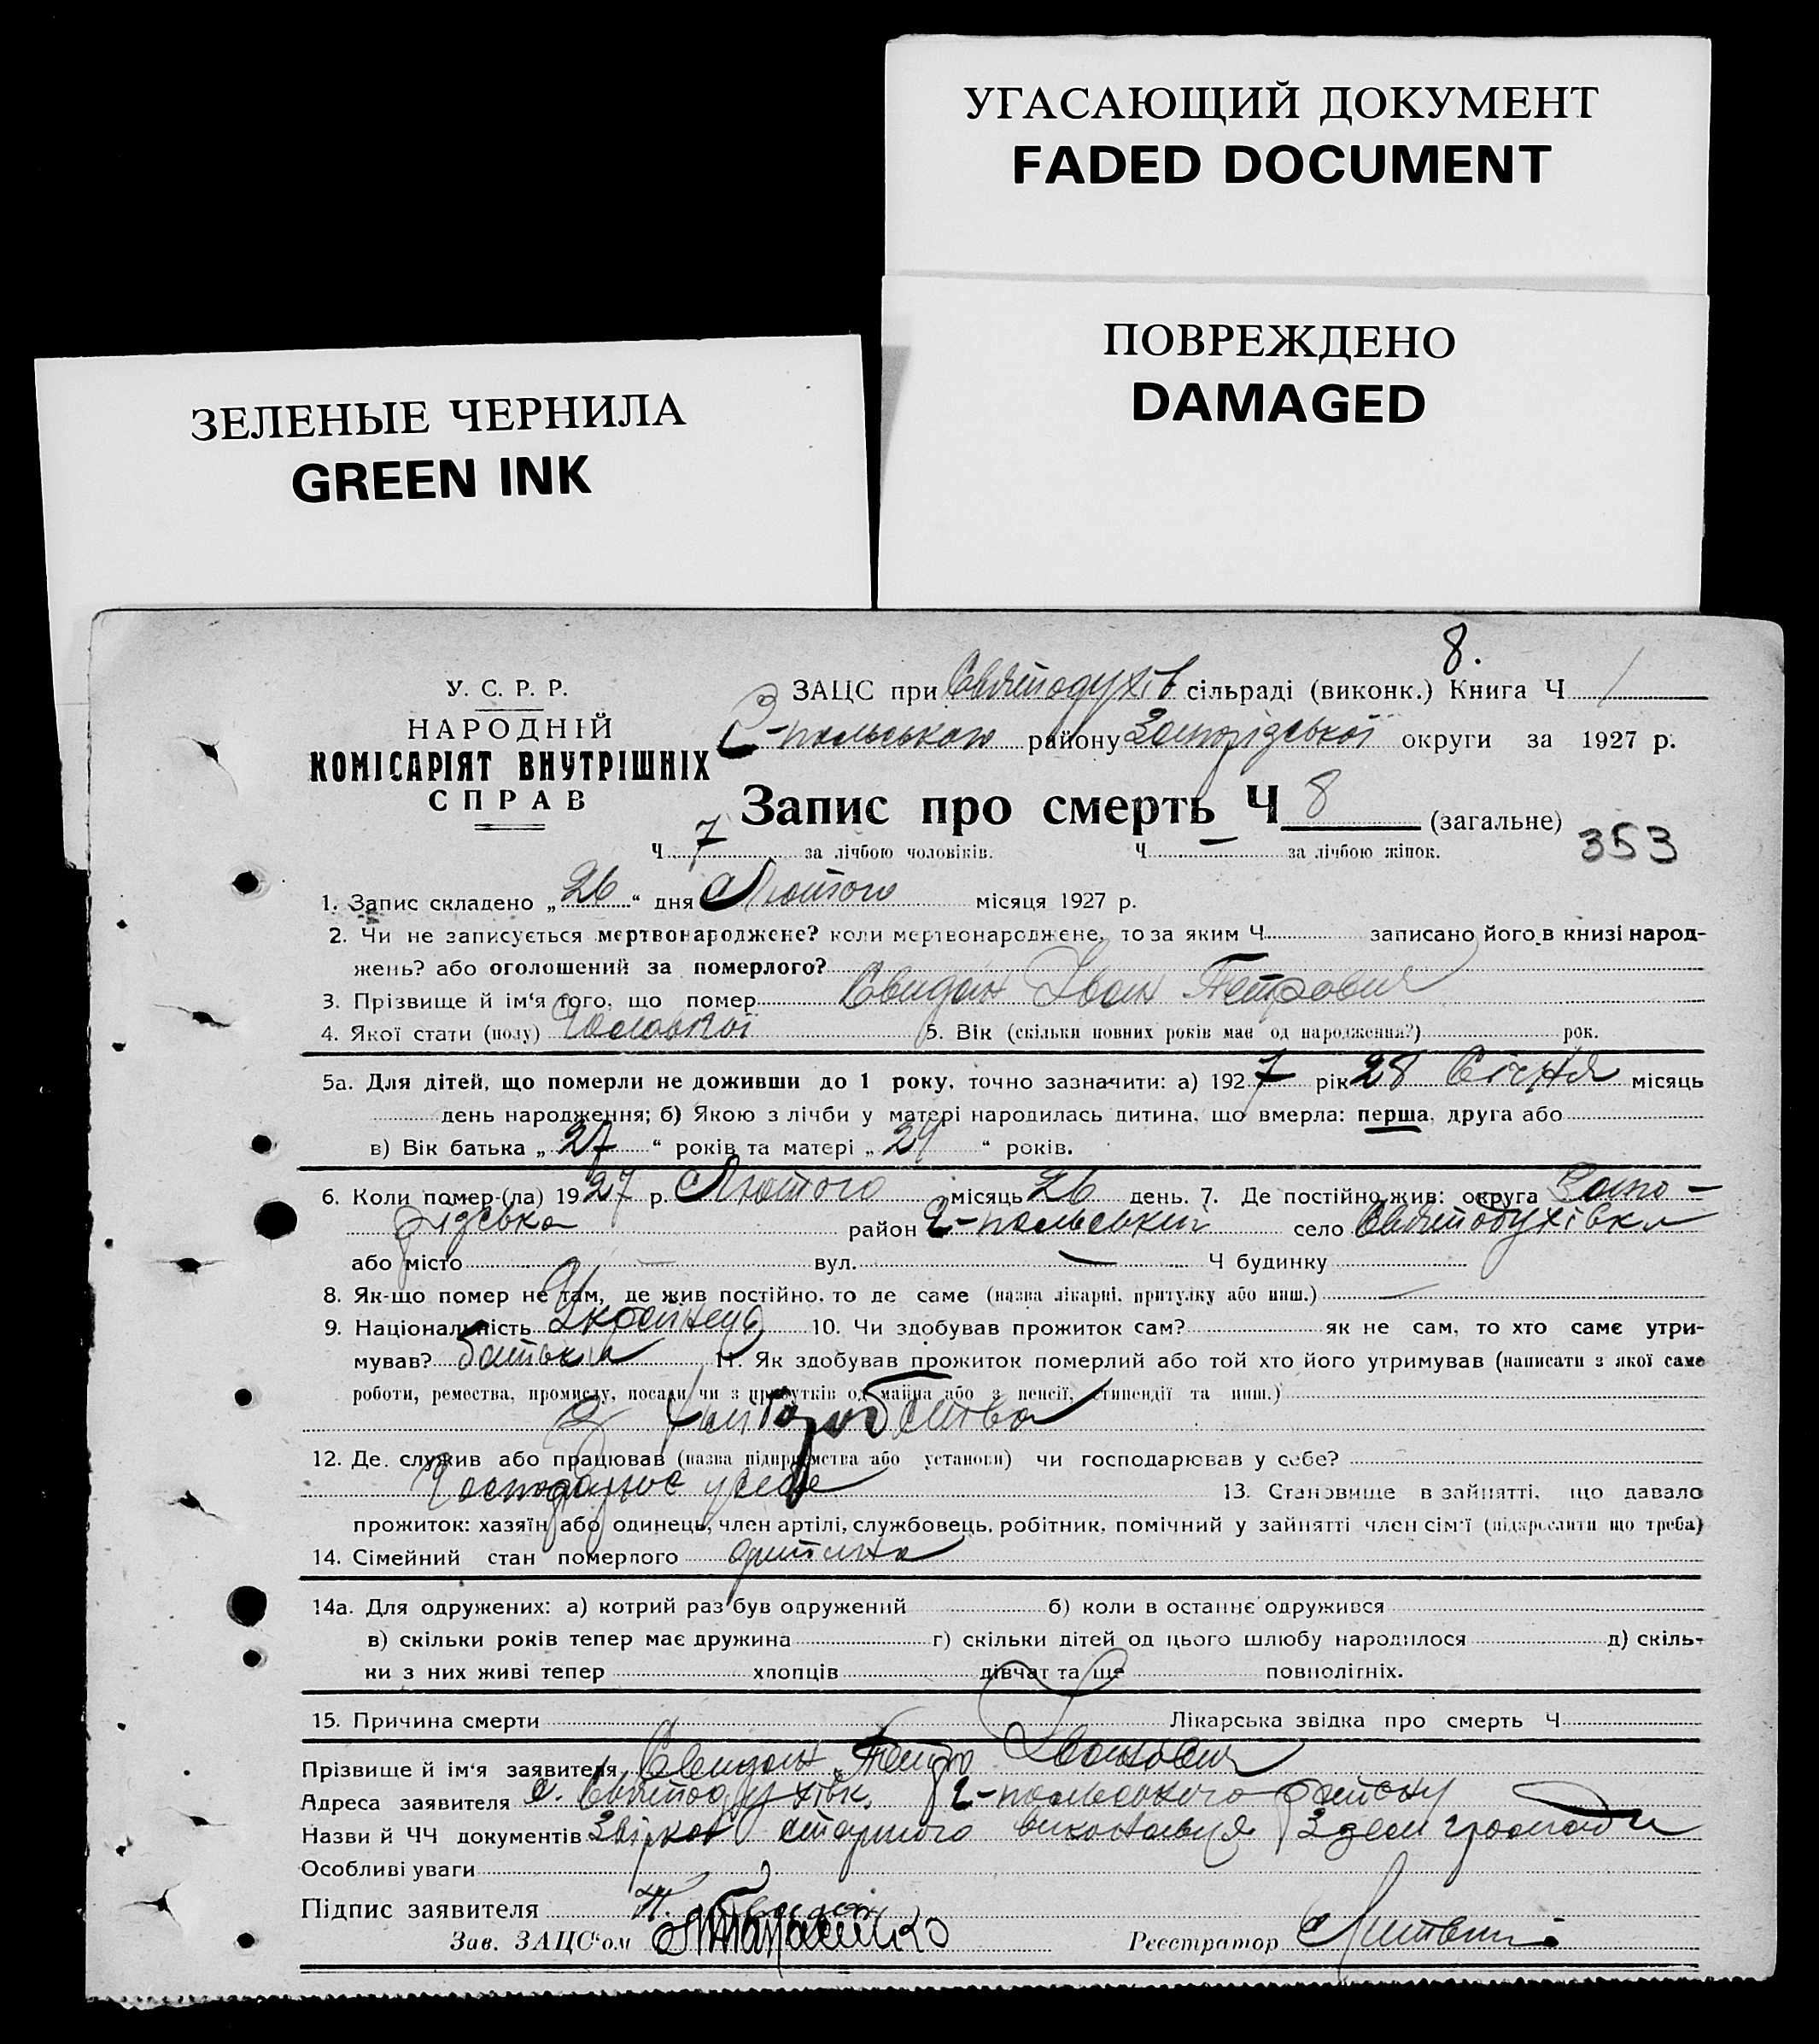 УГАСАЮЩИЙ ДОКУМЕНТ
FADED DOCUMENT
ПОВРЕЖДЕНО
DAMAGED
ЗЕЛЕНЫЕ ЧЕРНИЛА
GREEN INK
8.
У. С. Р. Р.
НАРОДНІЙ
КОМІСАРІЯТ ВНУТРІШНІХ
СПРАВ
ЗАЦС при Святодухів сільраді (виконк.) Книга Ч 1
-польського району Запорізської округи за 1927 р.
Запис про смерть Ч 8 (загальне)
353
Ч 7 за лічбою чоловіків. Ч — за лічбою жінок.
1. Запис складено „26“ дня Лютого місяця 1927 р.
2. Чи не записується мертвонароджене? коли мертвонароджене, то за яким Ч записано його в книзі народ-
жень? або оголошений за померлого?
3. Прізвище й ім'я того, що помер Свидан Іван Петрович
4. Якої стати (полу) Чоловічої 5. Вік (скільки повних років має од народження?) рок.
5а. Для дітей, що померли не доживши до 1 року, точно зазначити: а) 1927 рік 28 Січня місяць
день народження; б) Якою з лічби у матері народилась дитина, що вмерла: перша, друга або
в) Вік батька „27“ років та матері „24“ років.
6. Коли помер-(ла) 1927 р. Лютого місяць 26 день. 7. Де постійно жив: округа Запо-
різська район -польський село Святодухівка
або місто — вул. — Ч будинку
8. Як-що помер не там, де жив постійно, то де саме (назва лікарні, притулку або инш.) —
9. Національність Українець 10. Чи здобував прожиток сам? як не сам, то хто саме утри-
мував? батьки 11. Як здобував прожиток померлий або той хто його утримував (написати з якої саме
роботи, ремества, промислу, посади чи з прибутків од майна або з пенсії, стипендії та инш.)
З хліборобства
12. Де служив або працював (назва підприємства або установи) чи господарював у себе?
Господарює у себе 13. Становище в зайнятті, що давало
прожиток: хазяїн або одинець, член артілі, службовець, робітник, помічний у зайнятті член сім'ї (підкреслити що треба)
14. Сімейний стан померлого дитина
14а. Для одружених: а) котрий раз був одружений б) коли в останнє одружився
в) скільки років тепер має дружина г) скільки дітей од цього шлюбу народилося д) скіль-
ки з них живі тепер хлопців дівчат та ще повнолітніх.
15. Причина смерти Лікарська звідка про смерть Ч
Прізвище й ім'я заявителя Свидан Петро Іванович
Адреса заявителя с. Святодухівк. -польського району
Назви й ЧЧ документів Звірков старшого виконавця Здем громади
Особливі уваги
Підпис заявителя П. Свидан
Зав. ЗАЦС'ом
Реєстратор Литвин